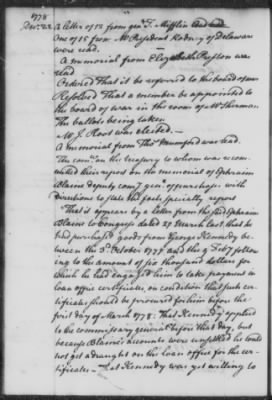 1778
Decr. 22
A letter of 12 from genl. T. Mifflin and read
One of 15 from Mr President Rodney of Delaware
were read.
A memorial from Elizabeth Preston was
read
Ordered That it be referred to the board of war
Resolved That a member be appointed to
the board of war in the room of Mr Sherman
The ballots being taken
Mr J. Root was elected. —
A memorial from Thos Mumford was read.
The comee. on the treasury to whom was recom-
mitted their report on the memorial of Ephraim
Blaine deputy comy genl. of purchases with
directions to state the facts specially report
That it appears by a letter from the said Ephraim
Blaine to Congress dated 27 March last that he
had purchased goods from George Kennedy be-
tween the 3d. October 1777 and the 9 Feby follow
ing to the amount of six thousand dollars for
which he had engaged him to take payment in
loan office certificates, on condition that such cer-
tificates should be procured for him before the
first day of March 1778: That Kennedy applied
to the commissary general before that day, but
because Blaine's accounts were unsettled he could
not get a draught on the loan office for the cer-
tificates — that Kennedy was yet willing to